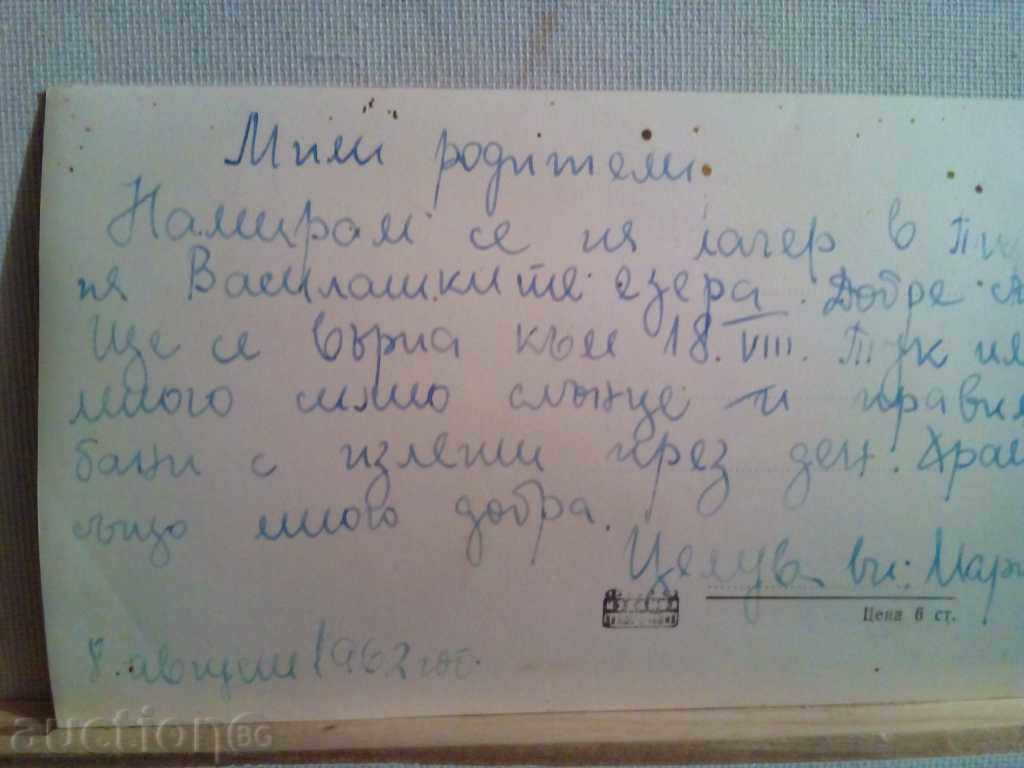 Мили родители.
Намирам се на лагер в
на Василашките езера. Добре
Ще се върна към 18. VIII. Тук
много силно слънце и
бани с излети през ден.
също много добра.
Целува ви:
Цена 6 ст.
8. август 1962 год.
auction BG